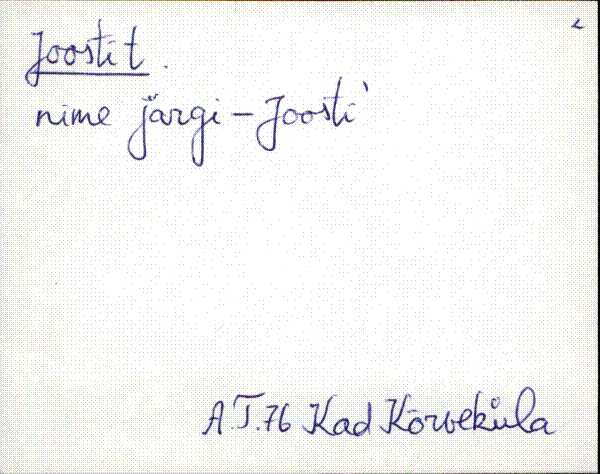 Joosti t.
nime järgi – Joosti'
A.T.76 Kad Kõrveküla